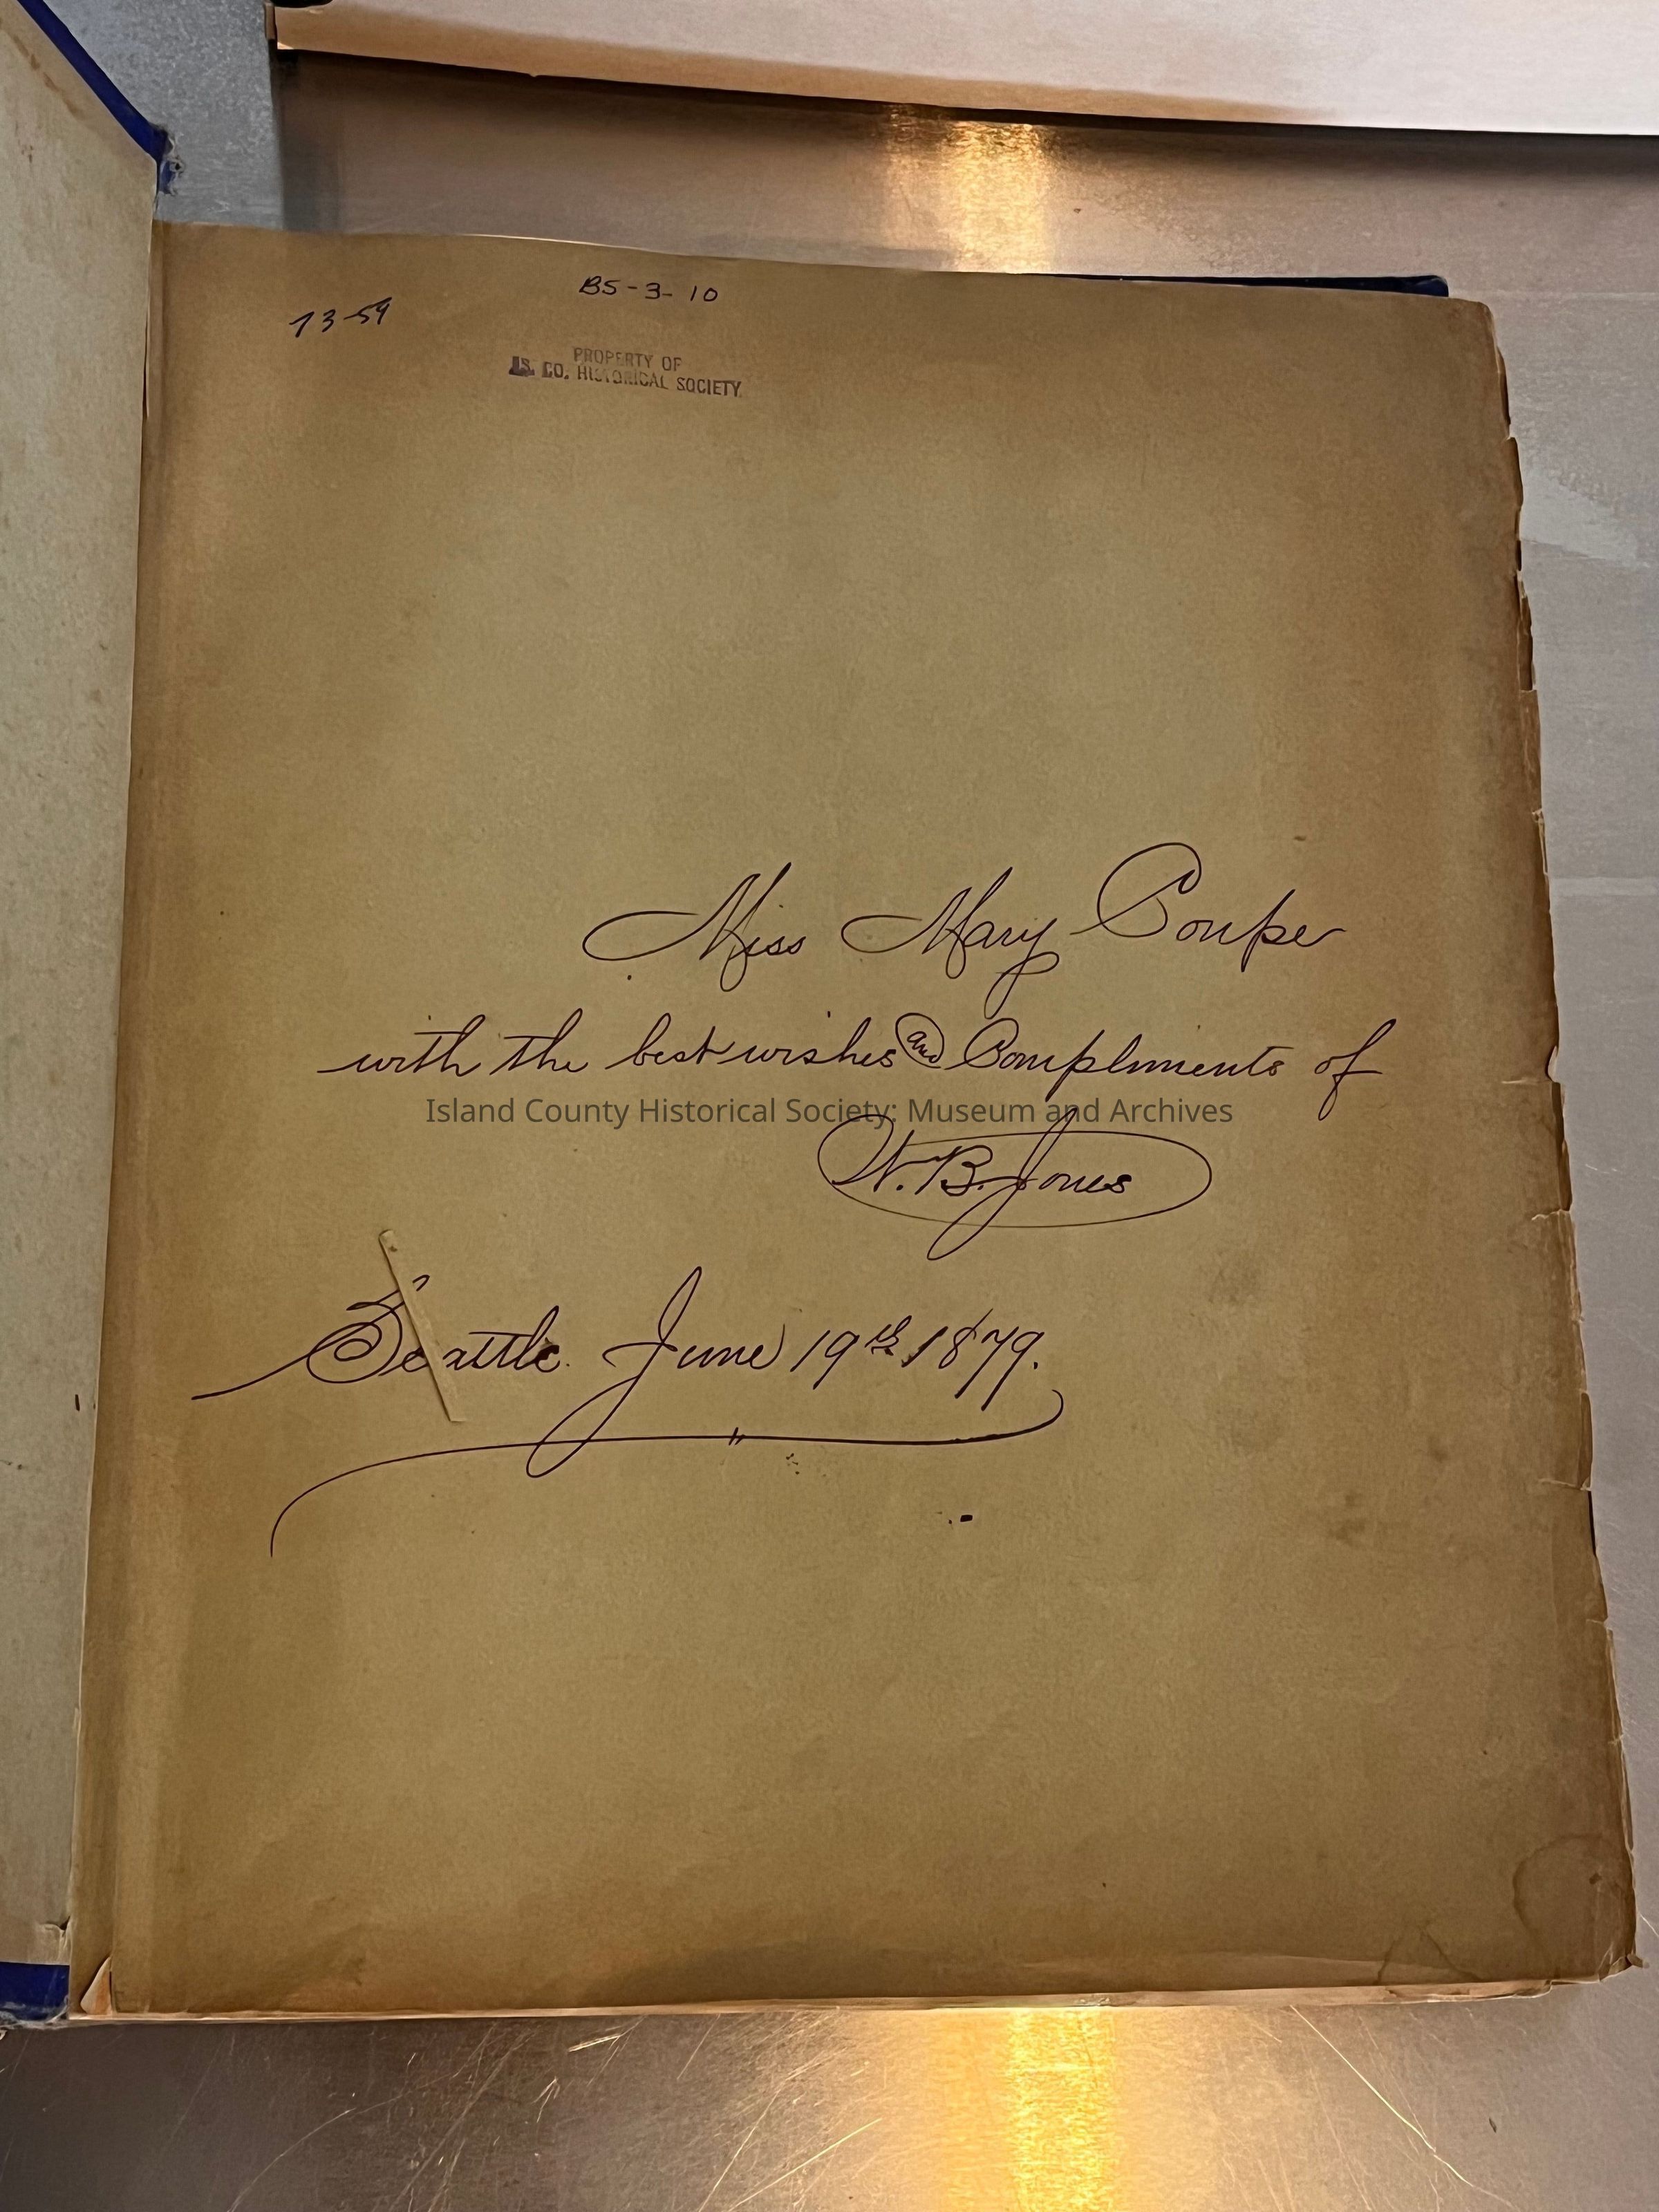 B5-3-10
73-59
PROPERTY OF
IS. CO. HISTORICAL SOCIETY
Miss Mary Coupe
with the best wishes and Compliments of
Island County Historical Society: Museum and Archives
W. B. Jones
Seattle. June 19th 1879.